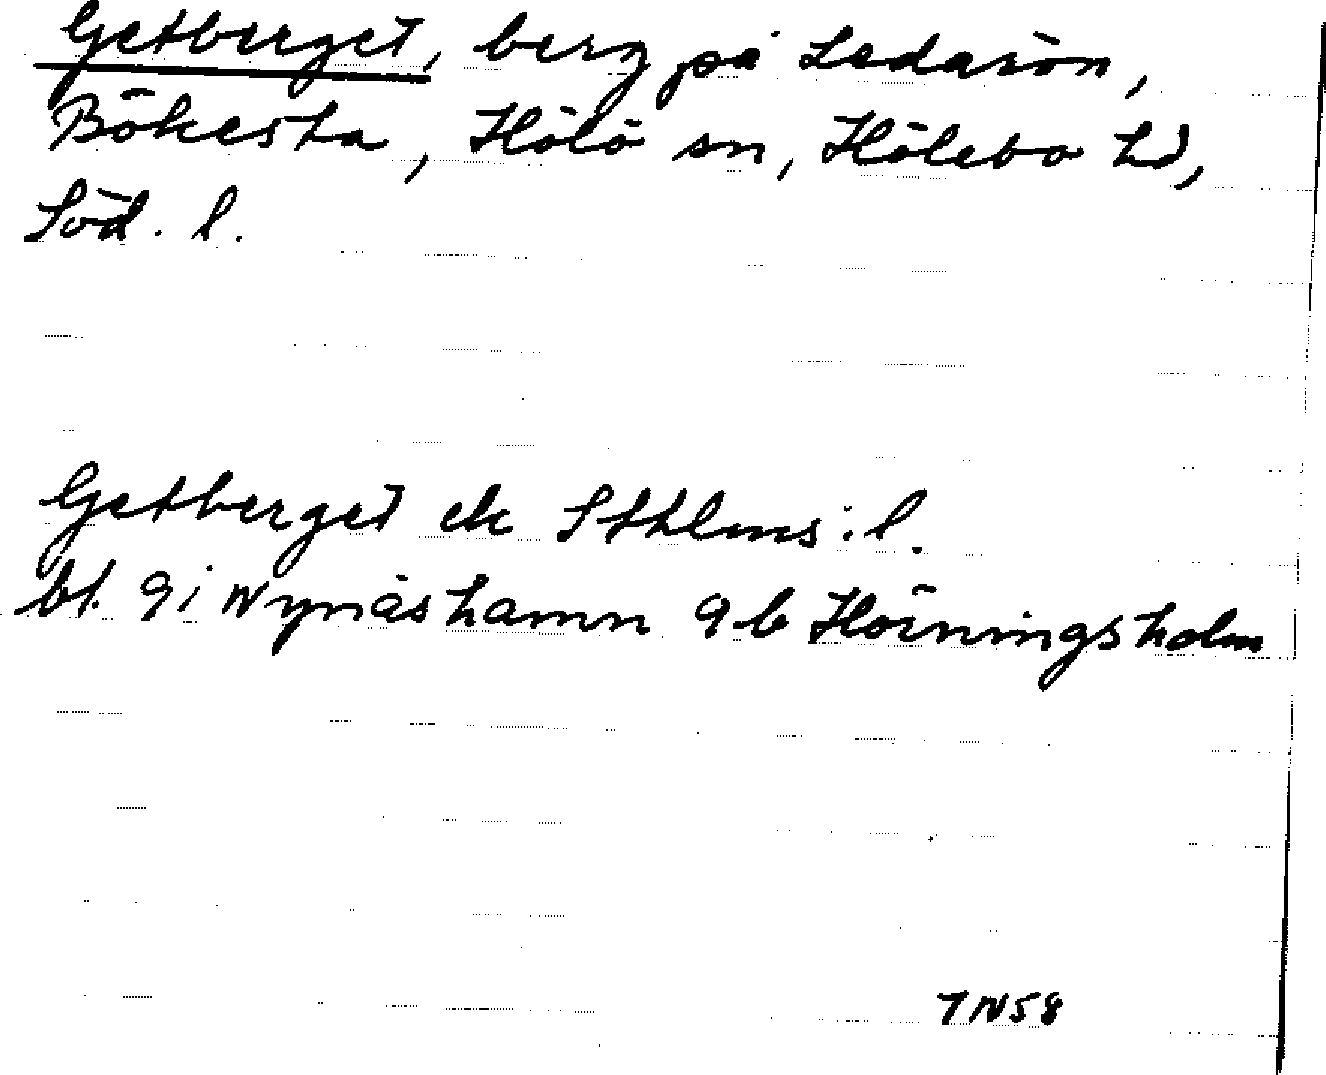 Getberget, berg på Ledarön,
Bökesta, Hölö sn, Hölebo hd,
Söd. l.
Getberget ek Sthlms l.
bl. 9i Nynäshamn 9b Hörningsholm
TN58